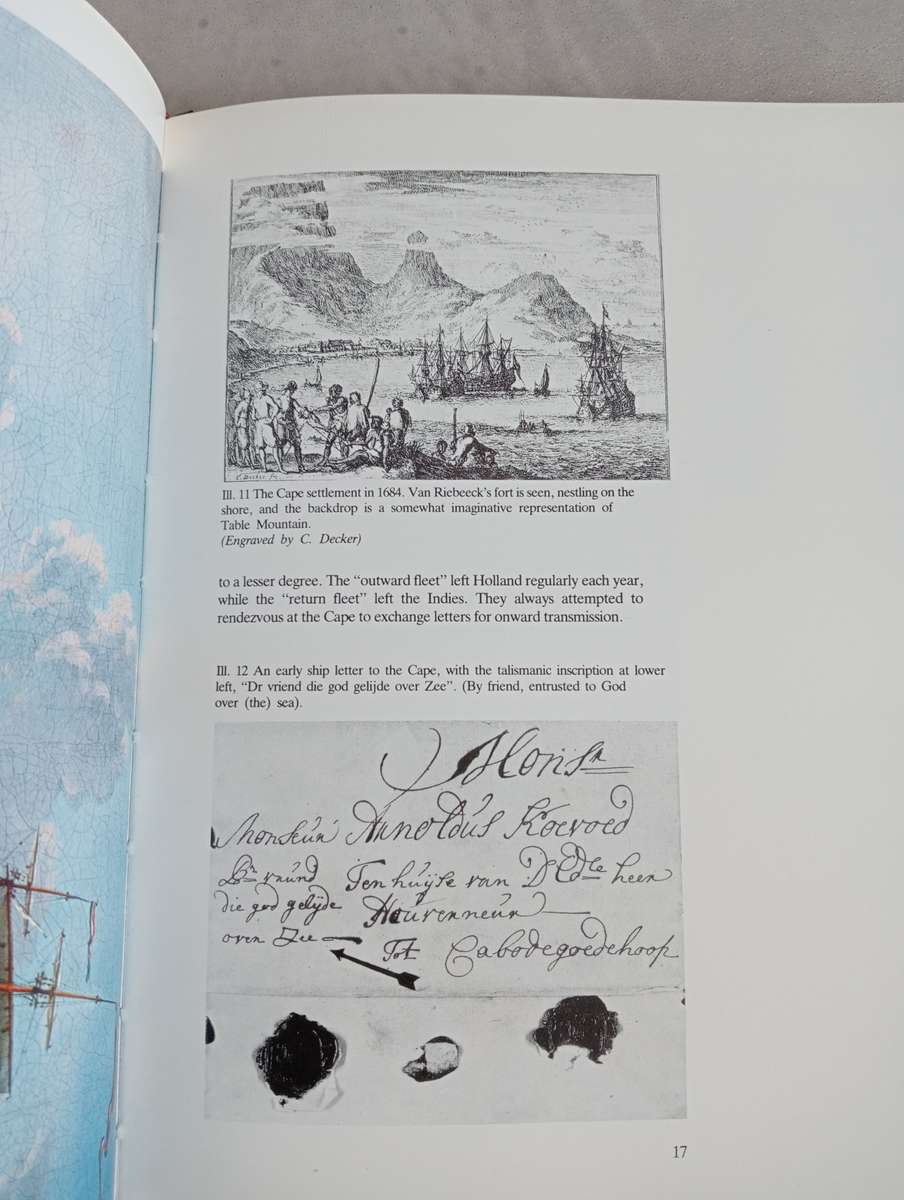 C. Decker fe.
Ill. 11 The Cape settlement in 1684. Van Riebeeck's fort is seen, nestling on the
shore, and the backdrop is a somewhat imaginative representation of
Table Mountain.
(Engraved by C. Decker)
to a lesser degree. The “outward fleet” left Holland regularly each year,
while the “return fleet” left the Indies. They always attempted to
rendezvous at the Cape to exchange letters for onward transmission.
Ill. 12 An early ship letter to the Cape, with the talismanic inscription at lower
left, “Dr vriend die god gelijde over Zee”. (By friend, entrusted to God
over (the) sea).
Monsr
Monseur Arnoldus Koevoed
Dr vrund Ten huijse van D Edle heer
die god gelijde Gouverneur
over Zee Tot Cabodegoedehoop
17